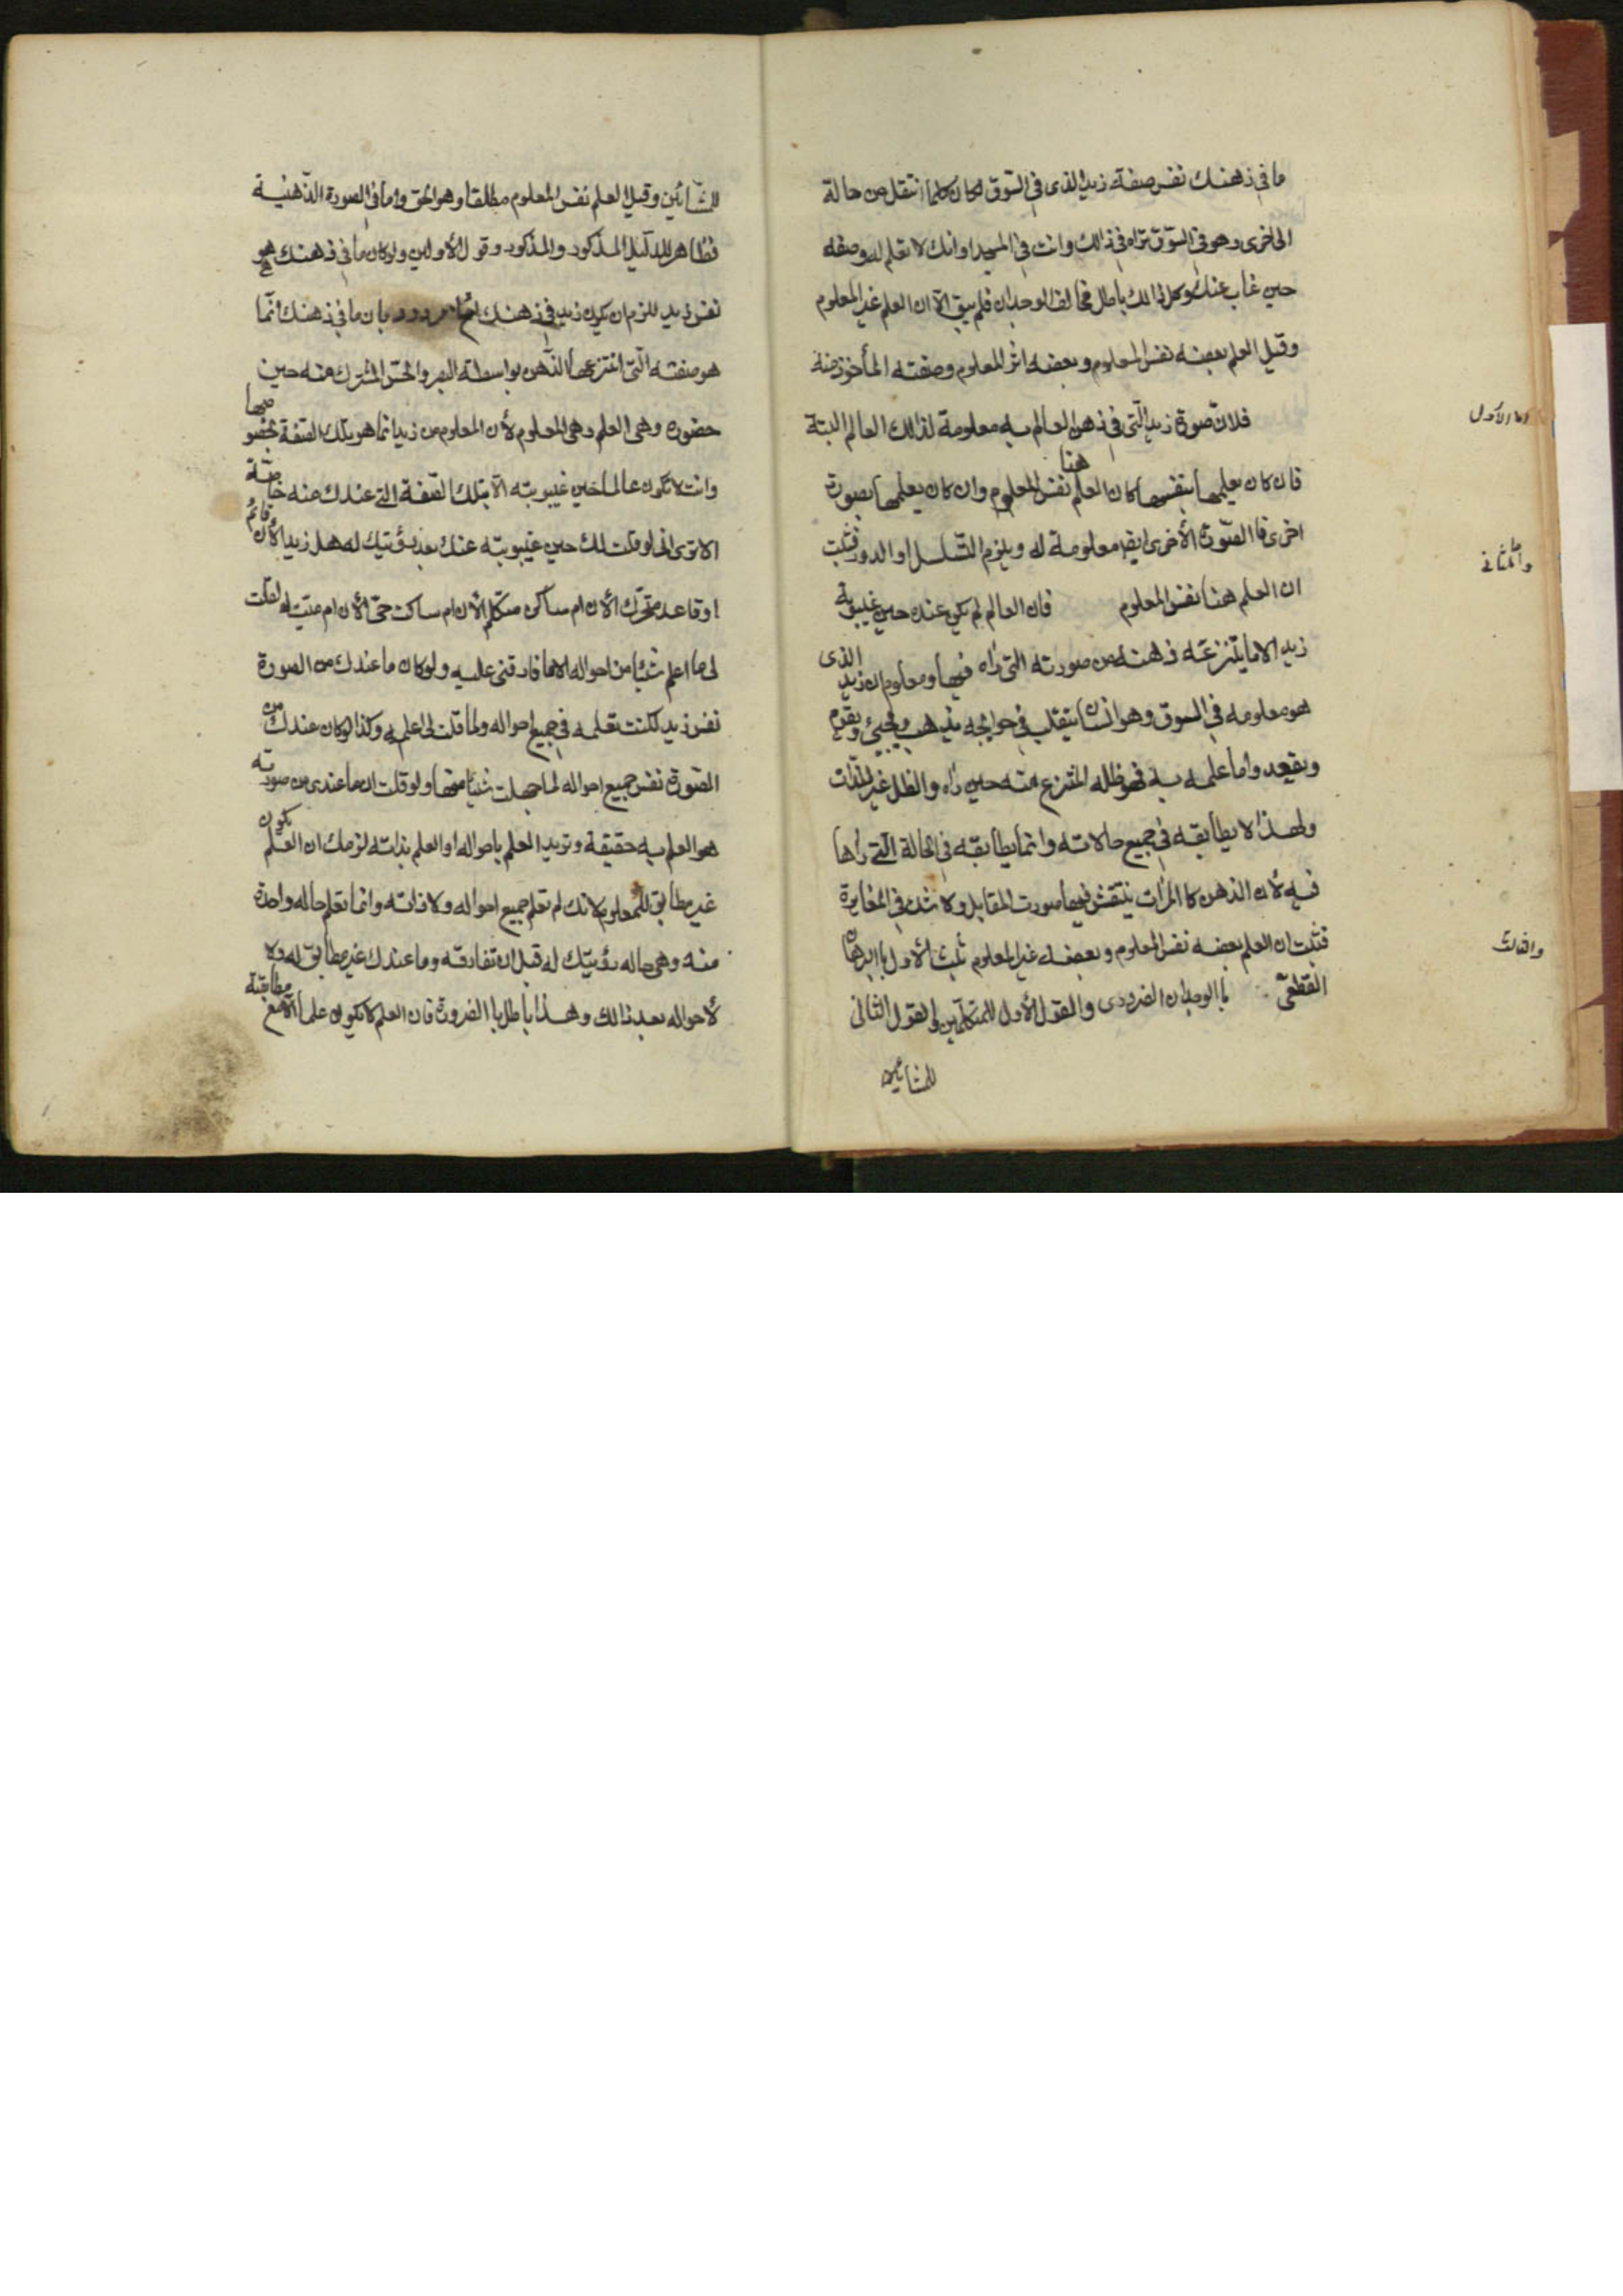 ما في ذهنك نفس صفة زيد الذي في السوق لكان كلما انتقل من حالة
الى اخرى وهو في السوق تراه في ذالك وانت في المسجد او انك لا تعلم له وصفه
حين غاب عنك وكل ذالك باطل مخالف الوجدان فلم يبق الّا ان العلم غير المعلوم
وقيل العلم بعضه نفس المعلوم وبعضه اثر المعلوم وصفته المأخوذ منه
اما الاول
فلان صورة زيد الّتي في ذهن العالم به معلومة لذالك العالم البتة
فان كان يعلمها بنفسها كان العلم هنا نفس المعلوم وان كان يعلمها بصورة
اخرى فا الصّورة الأخرى ايضا معلومة له ويلزم التّسلسل او الدور فثبت
واما الثاني
ان العلم هنا نفس المعلوم فان العالم لم يكن عنده حين غيبوبة
زيد الا ما ينتزعته ذهنه من صورته التي راه فيها ومعلوم ان زيد الذي
هو معلومه في السوق وهو انسان يتقلب في حوائجه يذهب ويجيئ ويقوم
ويقعد واما علمه به فهو ظله المنتزع منه حين راه والظل غير الذّات
ولهذا لا يطابقه في جميع حالاته وانما يطابقه في الحالة الّتي راها
فيه لان الذهن كا المرات ينتقش فيها صورت المقابل ولا شك في المغايرة
فثبت ان العلم بعضه نفس المعلوم وبعضه غير المعلوم ثبت الأول با البرهان
والثالث
القطعيّ با الوجدان الضروري والقول الأول للمتكلّمين والقول الثاني
للمشائين
للمشّائين وقيل العلم نفس المعلوم مطلقا وهو الحق واما في الصورة الذّهنية
فظاهر للدّليل المذكور والمذكور وقول الأولين ولو كان ما في ذهنك هو
نفس زيد للزم ان يكون زيد في ذهنك مردود بان ما في ذهنك انّما
هو صفته الّتي انتزعها الذّهن بواسطة البصر والحسّ المشترك منه حين
حضوره وهي العلم وهي المعلوم لأن المعلوم من زيد انما هو بتلك الصّفة بخصوصها
وانت لا تكون عالما حين غيبوبته الّا بتلك الصفة التي عندك منه خاصّة
الا ترى انى لو قلت لك حين غيبوبته عنك بعد رؤيتك له هل زيد الأن قائم
او قاعد متحرّك الأن ام ساكن متكلّم الأن ام ساكت حيّ الأن ام ميّت له لقلت
لى ما اعلم شيئا من احواله الا ما فارقنى عليه ولو كان ما عندك من الصورة
نفس زيد لكنت تعلمه في جميع احواله ولما قلت لى اعلم به وكذا لو كان عندك من
الصّورة نفس جميع احواله لما جهلت شيئا منها ولو قلت ان ما عندى من صورته
هو العلم به حقيقة وتريد العلم باحواله او العلم بذاته لزمك ان يكون العلم
غير مطابق للمعلوم لانك لم تعلم جميع احواله ولا ذاته وانما تعلم حاله واحدة
منه وهي حاله رؤيتك له قبل ان تفارقه وما عندك غير مطابق له ولا
لأحواله بعد ذالك وهذا باطل با الضرورة فان العلم لا يكون علما الّا مع مطابقته